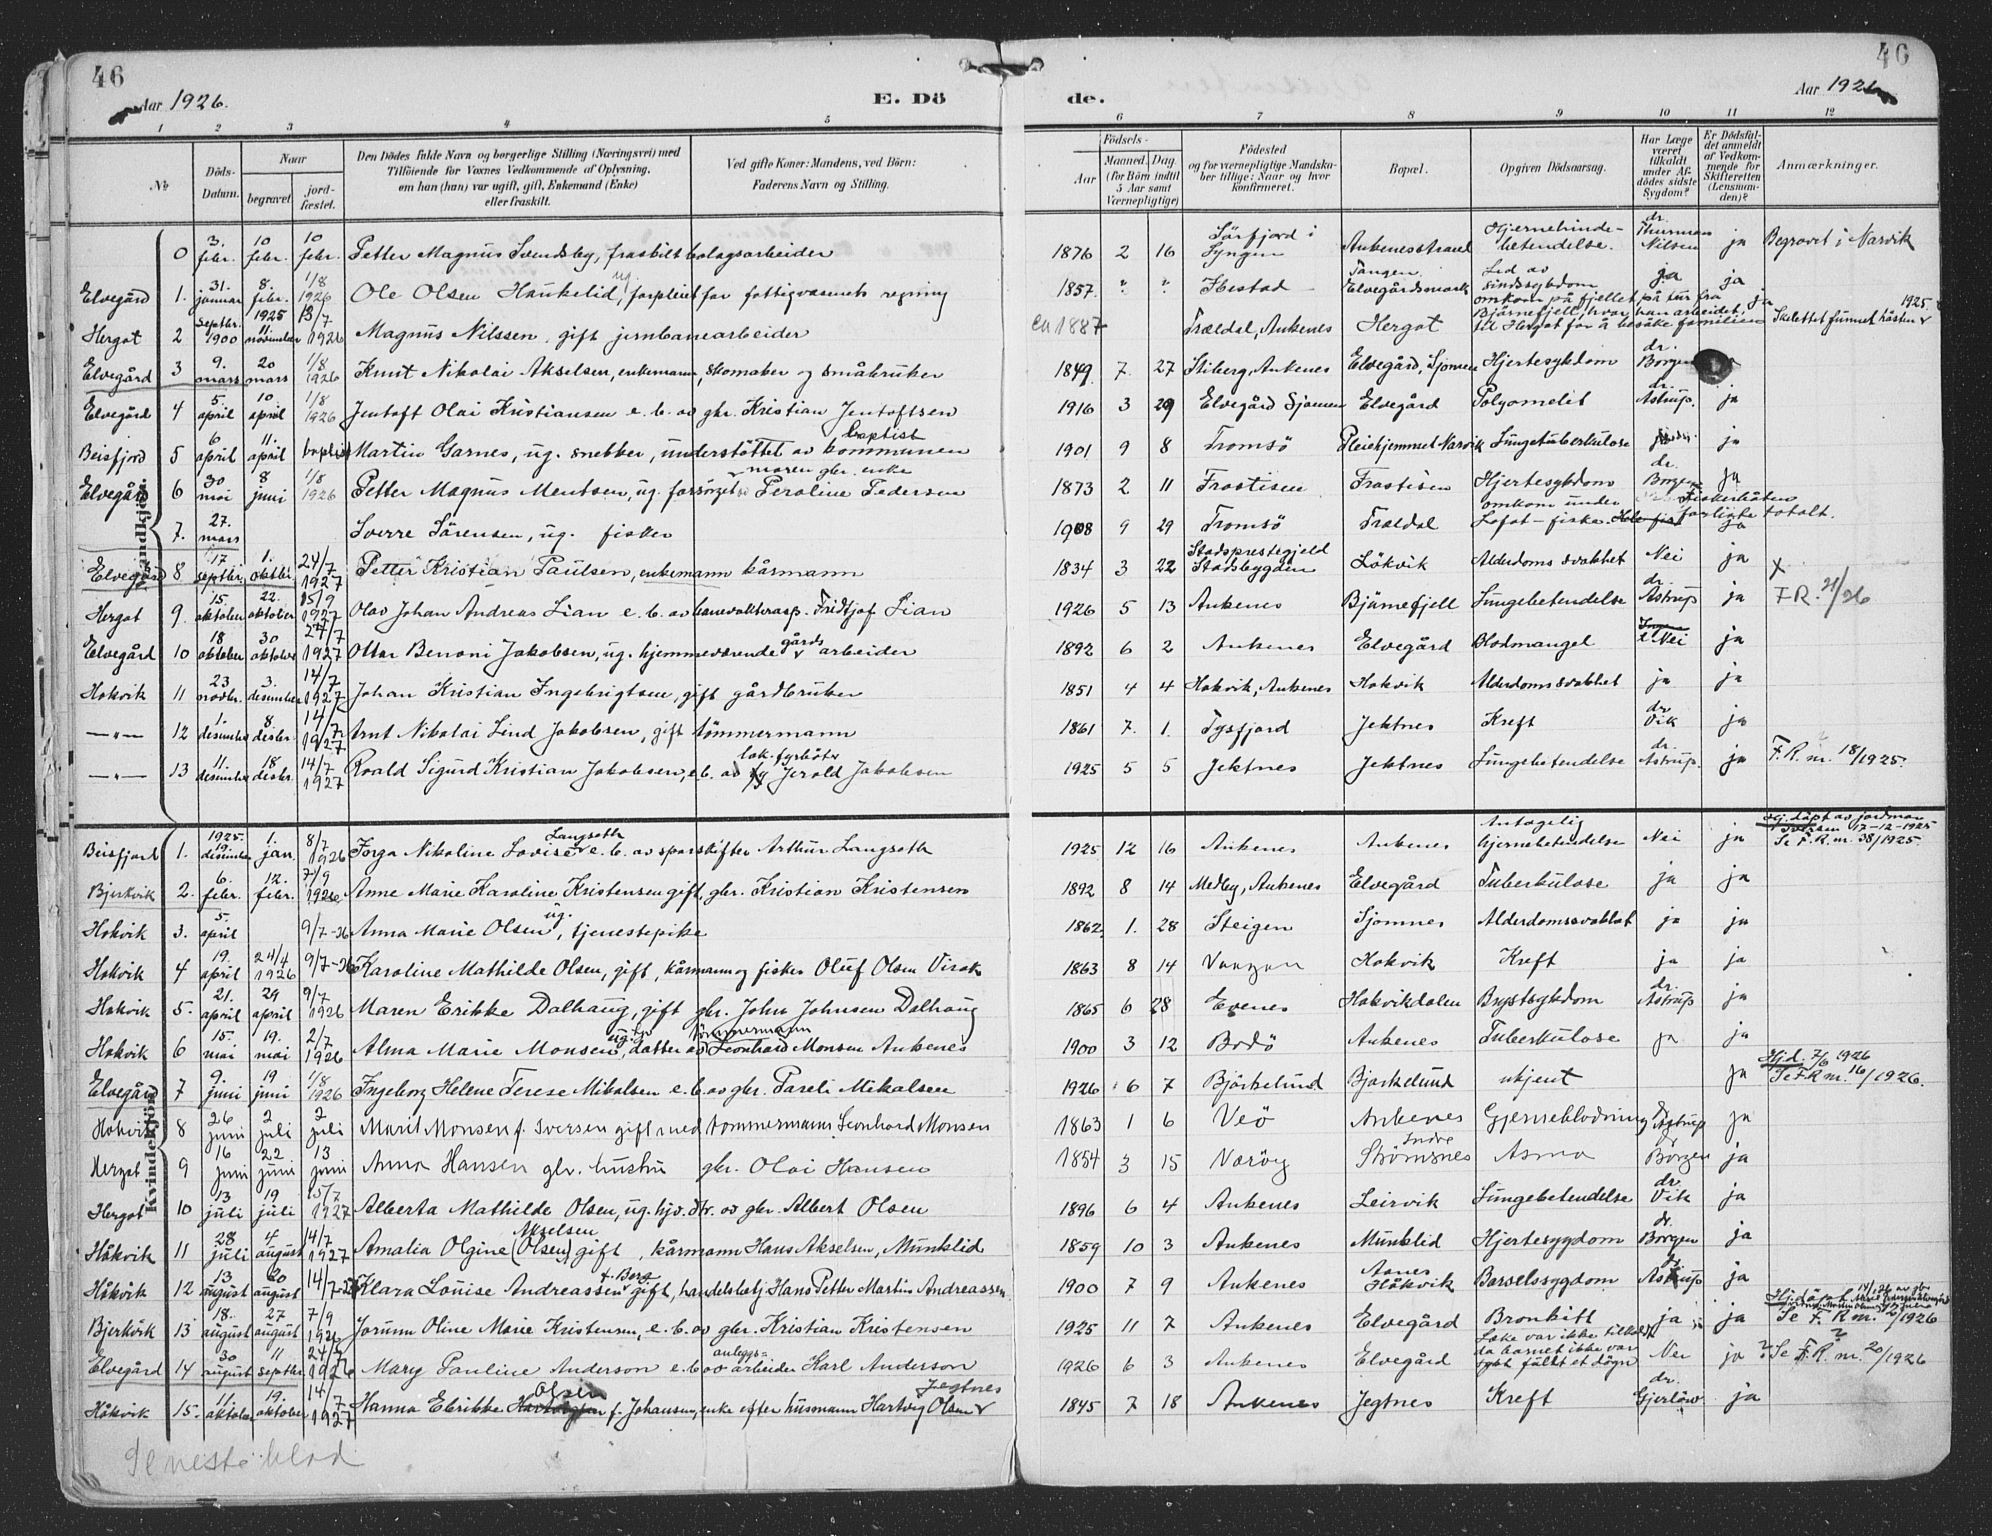 46
Aar 1926.
E. Dö
de.
46
Aar 1926
1 2 3 4 5 6 7 8 9 10 11 12
No
Döds-Datum.
Naar
begravet
jord-fæstet.
Den Dödes fulde Navn og borgerlige Stilling (Næringsvei) med
Tilföiende for Voxnes Vedkommende af Oplysning,
om han (hun) var ugift, gift, Enkemand (Enke)
eller fraskilt.
Ved gifte Koner: Mandens, ved Börn:
Faderens Navn og Stilling.
Födsels-
Aar
Maaned Dag
(for Börn indtil
5 Aar samt
Værnepligtige)
Födested
og for værnepligtige Mandska-
ber tillige: Naar og hvor
konfirmeret.
Bopæl.
Opgiven Dödsaarsag.
Har Læge
været
tilkaldt
under Af-
dödes sidste
Sygdom?
Er Dödsfal-
det anmeldt
af Vedkom-
mende for
Skifteretten
(Lensman-
den)?
Anmærkninger.
Mandkjön.
0 3. febr. 10 febr. 10 febr. Petter Magnus Svendsby, fraskilt bolagsarbeider 1876 2 16 Sörfjord i Lyngen Ankenesstrand Hjernehinde-betendelse. dr. Thurman Nilsen ja Begravet i Narvik
Elvegård 1. 31. januar 8. febr. 1/8 1926 Ole Olsen Haukelid, ug. forpleiet for fattigvæsenets regning 1857 " " Ibestad Tangen Elvegårdsmark Led av sindssygdom ja ja
Hergot 2 septbr. 1900 1925 11. november 13/7 1926 Magnus Nilssen, gift jernbanearbeider ca 1887 Trældal, Ankenes Hergot omkom på fjellet på tur fra Bjørnefjell, hvor han arbeidet, til Hergot for å besøke familien ja Skelettet funnet hösten 1925
Elvegård 3 9. mars 20 mars 1/8 1926 Knut Nikolai Akselsen, enkemann, skomaker og småbruker 1849 7. 27 Stiberg, Ankenes Elvegård, Sjomen Hjertesykdom dr. Borgen
Elvegård 4 5. april 10 april 1/8 1926 Jentoft Olai Kristiansen e. b. av gbr. Kristian Jentoftsen 1916 3 29 Elvegård Sjomen Elvegård Polyomelit dr. Astrup. ja
Beisfjord 5 6 april 11. april baptist Martin Garnes, ug. snekker, understöttet av kommunen baptist 1901 9 8 Tromsö Pleiehjemmet Narvik Lungetuberkulose ja
Elvegård 6 30 mai 8 juni 1/8 1926 Petter Magnus Mentsen, ug. forsörget av moren gbr. enke Peroline Pedersen 1873 2 11 Frostisen Frostisen Hjertesykdom dr. Borgen ja
7. 27. mars Sverre Sörensen, ug. fisker 1908 9 29 Tromsö Trældal omkom under Lofot-fiske. Fiskerbåten forliste totalt. ja
Elvegård 8 17 septbr. 1. oktbr. 24/7 1927 Petter Kristian Paulsen, enkemann kårmann 1834 3 22 Stadsprestegjeld Stadsbygden Lökvik Alderdoms svakhet Nei ja x
Hergot 9. 15. oktober 22. oktober 15/9 1927 Olav Johan Andreas Lian e. b. av banevokterasp. Fridtjof Lian 1926 5 13 Ankenes Bjørnefjell Lungebetendelse dr. Astrup ja F.R. 21/26
Elvegård 10 18 oktober 30 oktober 24/7 1927 Ottar Benoni Jakobsen, ug. hjemmeværende gårds arbeider 1892 6 2 Ankenes Elvegård Blodmangel Nei ja
Hokvik 11 23 novbr. 3. desember 14/7 1927 Johan Kristian Ingebrigtsen, gift gårdbruker 1851 4 4 Hokvik, Ankenes Hokvik Alderdomssvakhet ja ja
—"— 12 1. desember 8. desbr. 14/7 1927 Arnt Nikolai Lind Jakobsen, gift tömmermann 1861 7. 1. Tysfjord Jektnes Kreft dr. Vik ja
—"— 13 11. desember 18 desbr. 14/7 1927 Roald Sigurd Kristian Jakobsen, e.b. av lok. fyrböter Jerold Jakobsen 1925 5 5 Jektnes Jektnes Lungebetendelse dr. Astrup. ja F.R. nr. 18/1925.
Kvindekjön.
Beisfjord 1. 1925. 19. desember 1. jan. 8/7 1926 Inga Nikoline Lovise Langseth e. b. av sporskifter Arthur Langseth 1925 12 16 Ankenes Ankenes Antagelig hjernebetendelse Nei ja Hj. döpt av jordmor Iversen 17-12-1925 Se F.R. nr. 38/1925.
Bjerkvik 2. 6. febr. 12. febr. 7/9 1926 Anne Marie Karoline Kristensen gift, gbr. Kristian Kristensen 1892 8 14 Medby, Ankenes Elvegård Tuberkulose ja ja
Hokvik 3. 5. april 9/7-26 Anna Marie Olsen, ug. tjenestepike 1862. 1. 28 Steigen Sjomnes Alderdomssvakhet ja ja
Hokvik 4 19. april 24/4 1926 9/7-26 Karoline Mathilde Olsen, gift, kårmann og fisker Oluf Olsen Virak 1863 8 14 Vaagan Hokvik Kreft ja ja
Hokvik 5. 21. april 29 april 9/7 1926 Maren Erikke Dalhaug, gift gbr. John Johnsen Dalhaug 1865 6 28 Evenes Hokvikdalen Brystsykdom dr. Astrup ja
Hokvik 6 15. mai 19. mai 2/7 1926 Alma Marie Monsen, ug. datter av tömmermann Leonhard Monsen Ankenes 1900 3 12 Bodö Ankenes Tuberkulose ja ja
Elvegård 7 9. juni 19 juni 1/8 1926 Ingeborg Helene Terese Mikalsen e. b. av gbr. Pareli Mikalsen 1926 6 7 Björkelund Bjorkelund ukjent ja Hj.d. 7/6 1926 Se F.R. nr. 16/1926.
Hokvik 8 26 juni 2 juli 2 juli Marit Monsen f. Iversen gift med tömmermann Leonhard Monsen 1863 1 6 Veö Ankenes Hjerneblödning dr Astrup ja
Hergot 9 16 juni 22 juni 13 juni Anna Hansen gbr. hustru gbr. Olai Hansen 1854 3 15 Næröy Indre Strömsnes Asma Dr Borgen ja
Hergot 10 13 juli 19 juli 15/7 1927 Alberta Mathilde Olsen, ug. hjv. dtr. av gbr. Albert Olsen 1896 6 4 Ankenes Leirvik Lungebetendelse dr. Vik ja
Håkvik 11 28 juli 4 august 14/7 1927 Amalia Olgine (Olsen) Akselsen gift, kårmann Hans Akselsen, Munklid 1859 10 3 Ankenes Munklid Hjertesygdom dr. Borgen ja
Håkvik 12 13 august 20 august 14/7-27 Klara Louise Andreassen f. Berg gift, handelsbetj Hans Petter Martius Andreassen 1900 7 9 Ankenes Aanes Håkvik Barselssygdom dr Astrup ja
Bjerkvik 13 18. august 27 august 7/9 1926 Jorunn Oline Marie Kristensen, e. b. av gbr. Kristian Kristensen 1925 11 7 Ankenes Elvegård Bronkitt ja ja Hj.döpt 14/1.26 av gbr Se F.R. nr. 2/1926
Elvegård 14 30 august 11 septbr. 24/7 1926 Mary Pauline Anderson e. b. av anleggs= arbeider Karl Anderson 1926 6 3 Ankenes Elvegård Læke var ikke tilkalt da barnet ikke var sykt fullt et døgn Nei ja ? Se F.R. nr. 20/1926
Håkvik 15. 11. oktober 19. oktober 14/7 1927 Hanna Elrikke Olsen f. Johansen, enke efter husmann Hartvig Olsen Jegtnes 1845 7 18 Ankenes Jegtnes Kreft dr. Gjerlöw ja
Se neste blad